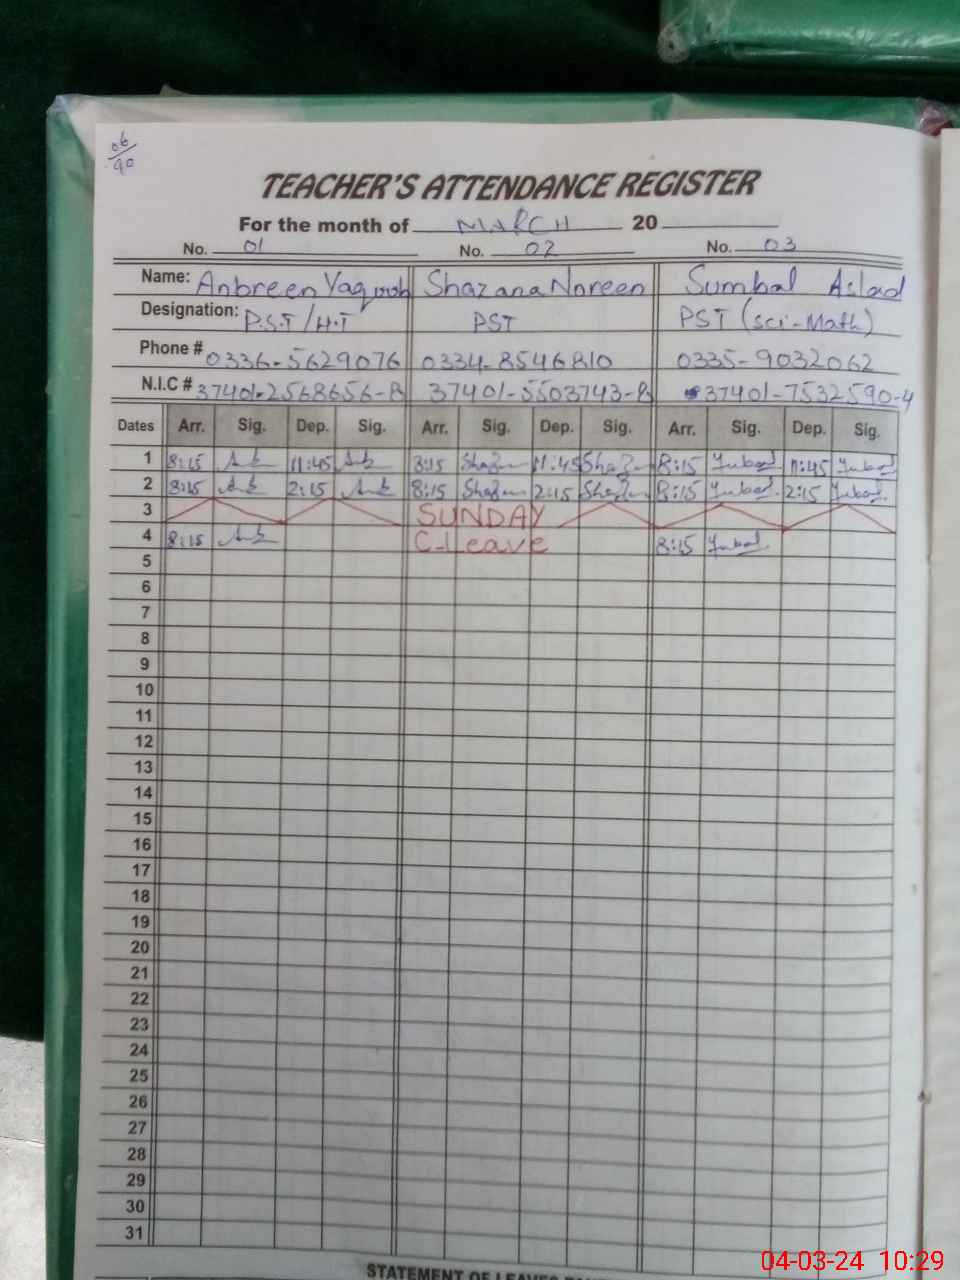 06/90
TEACHER'S ATTENDANCE REGISTER
For the month of MARCH 20
No. 01 No. 02 No. 03
Name: Anbreen Yaqoob Shazana Noreen Sumbal Aslad
Designation: P.S.T/H.T PST PST (sci-Math)
Phone # 0336-5629076 0334-8546810 0335-9032062
N.I.C # 37401-2568656-8 37401-5503743-8 37401-7532590-4
Dates Arr. Sig. Dep. Sig. Arr. Sig. Dep. Sig. Arr. Sig. Dep. Sig.
1 8:15 11:45 8:15 11:45 8:15 11:45
2 8:15 2:15 8:15 2:15 8:15 2:15
3 SUNDAY
4 8:15 C-Leave 8:15
5
6
7
8
9
10
11
12
13
14
15
16
17
18
19
20
21
22
23
24
25
26
27
28
29
30
31
STATEMENT OF LEAVES
04-03-24 10:29